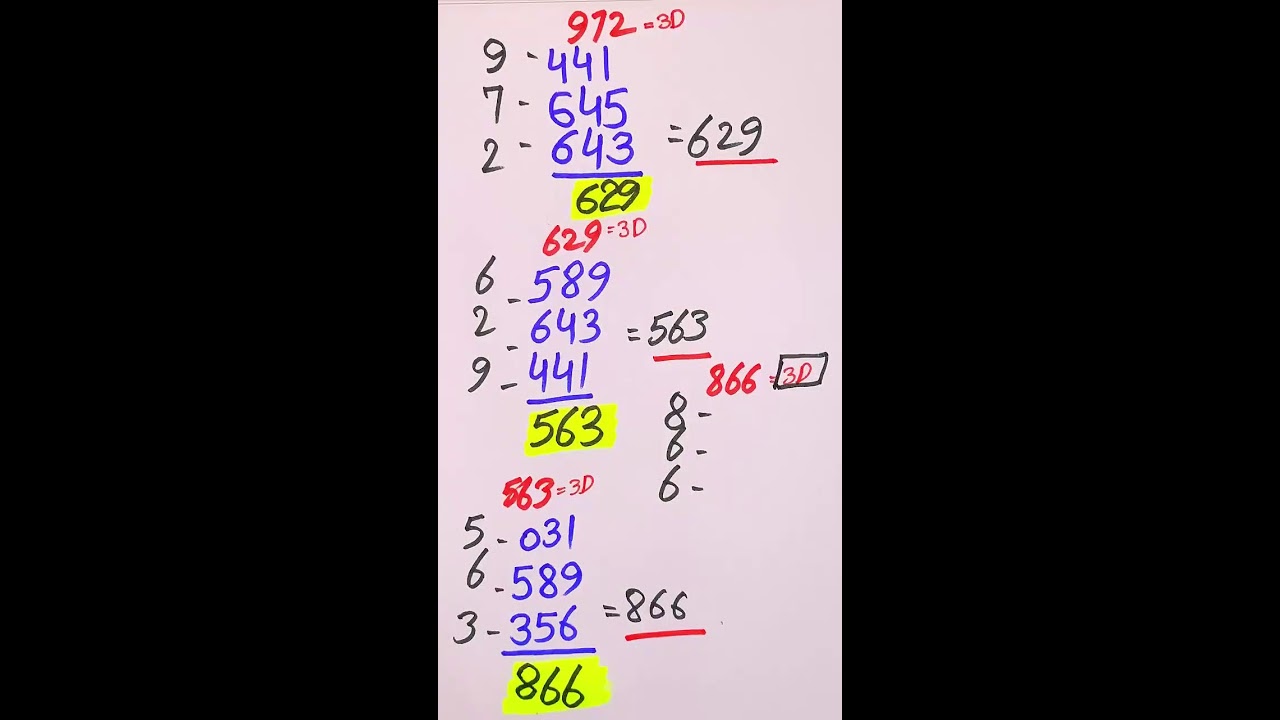 972 = 3D
9 - 441
7 - 645
2 - 643 = 629
629
629 = 3D
6 - 589
2 - 643 = 563
9 - 441
563
866 = 3D
8 -
6 -
6 -
563 = 3D
5 - 031
6 - 589
3 - 356 = 866
866